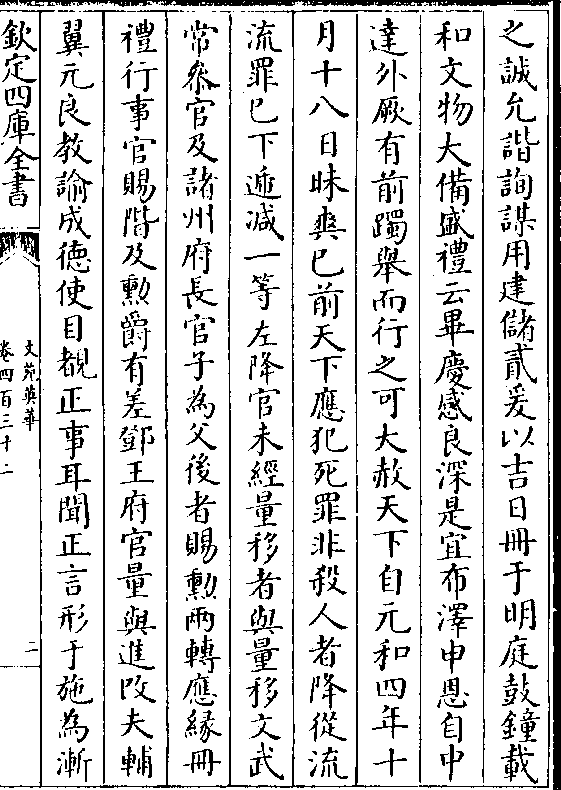 之誠允諧詢謀用建儲貳爰以吉日冊于明庭鼓鐘載
和文物大備盛禮云畢慶感良深是宜布澤申恩自中
達外厥有前躅舉而行之可大赦天下自元和四年十
月十八日昧爽已前天下應犯死罪非殺人者降從流
流罪已下遞減一等左降官未經量移者與量移文武
常叅官及諸州府長官子為父後者賜勲兩轉應縁冊
禮行事官賜階及勲爵有差鄧王府官量與進改夫輔
翼元良教諭成徳使目覩正事耳聞正言形于施為漸
欽定四庫全書
文苑英華
卷四百三十二
二